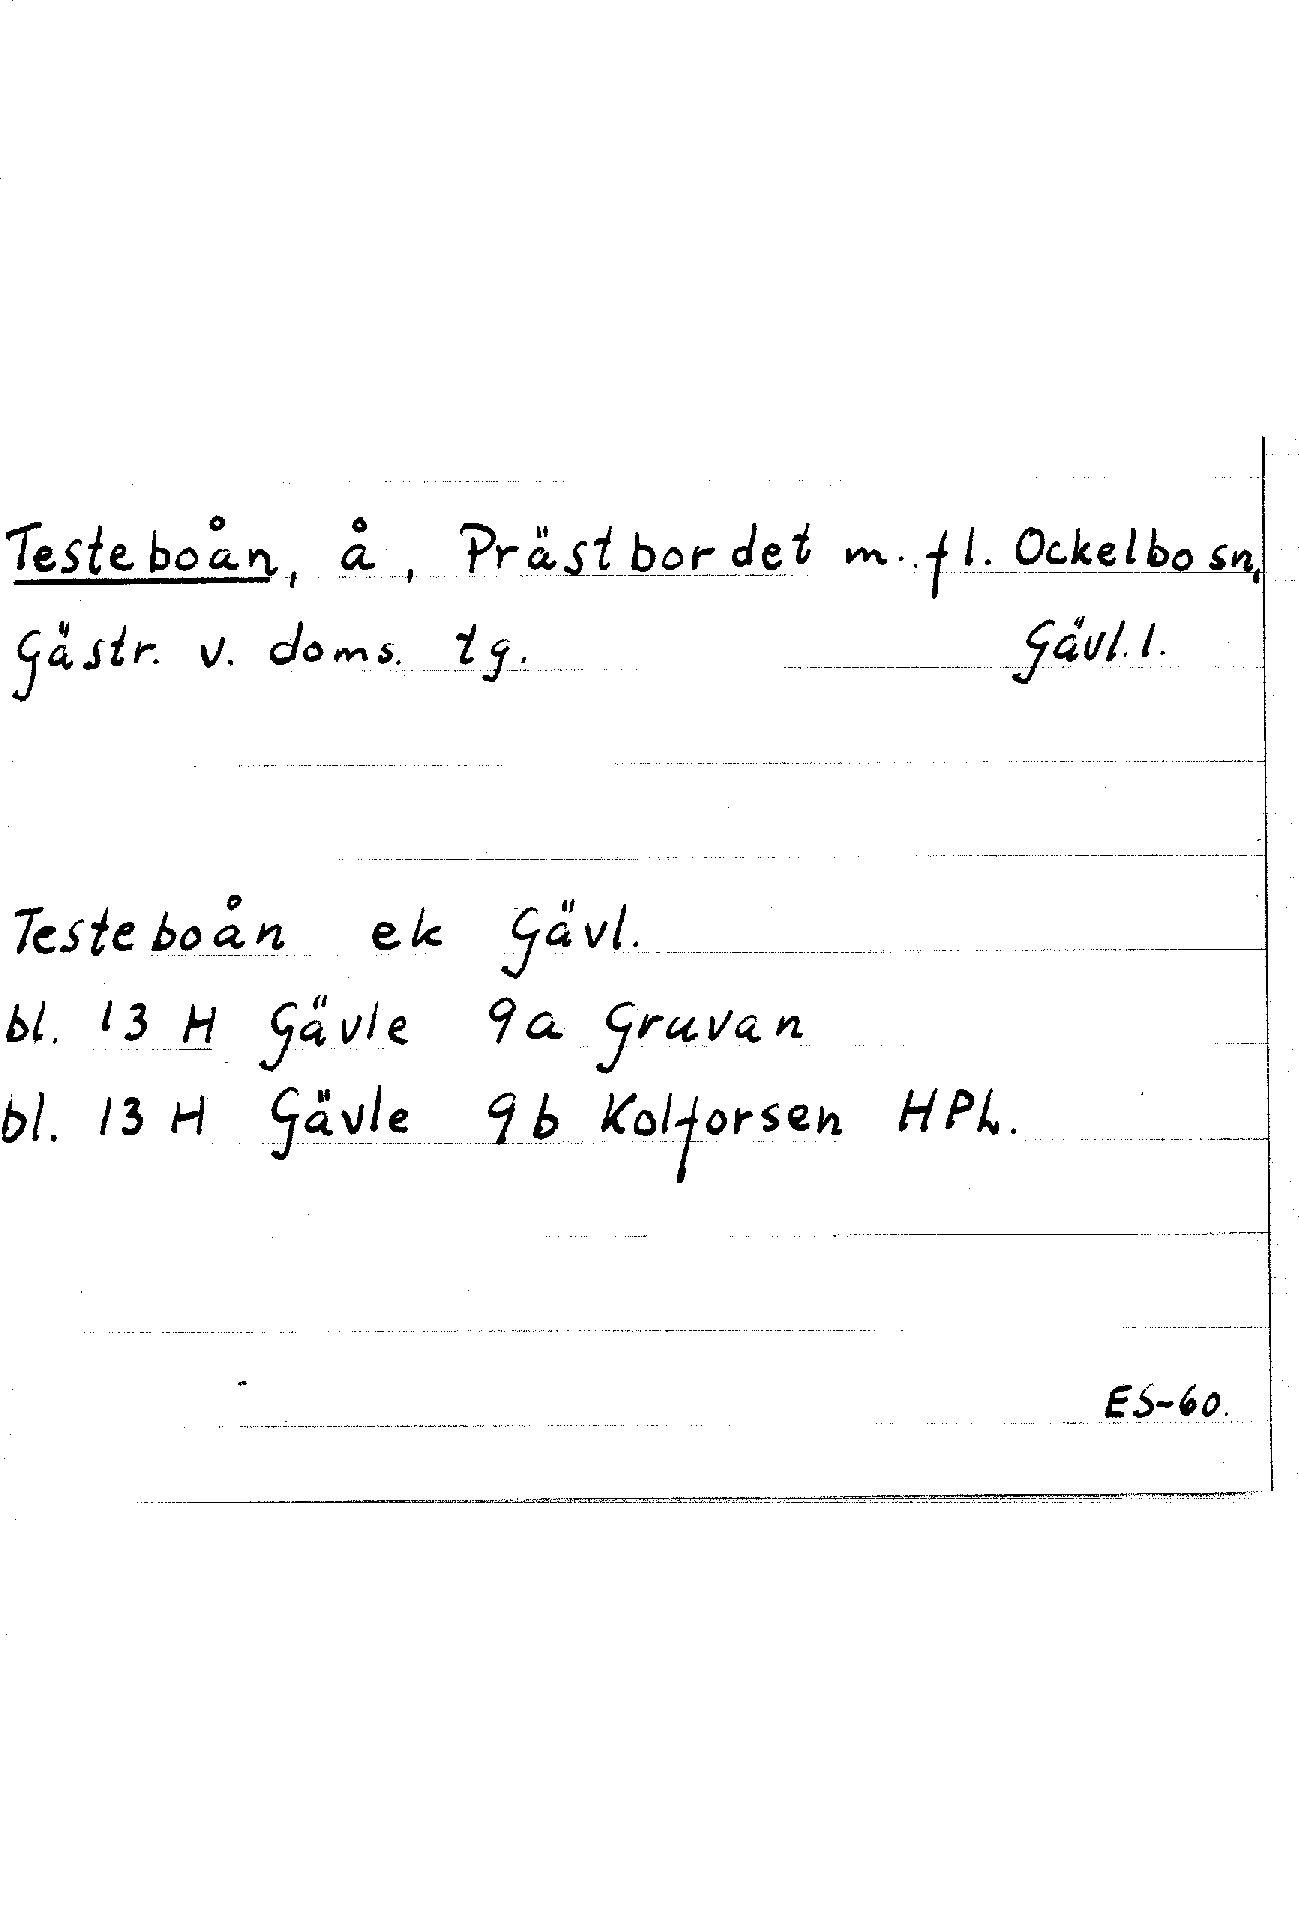 Testeboån, å, Prästbordet m. fl. Ockelbo sn,
Gästr. v. doms. tg. Gävl. l.
Testeboån ek Gävl.
bl. 13 H Gävle 9a Gruvan
bl. 13 H Gävle 9b Kolforsen HPL.
ES-60.